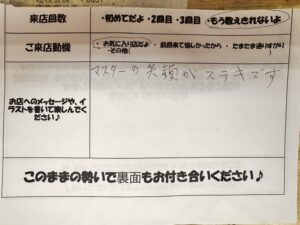 来店回数
・初めてだよ ・2回目 ・3回目 ・もう数えきれないよ
ご来店動機
・お気に入り店だよ ・前回来て愉しかったから ・たまたま通りすがり
・その他(
)
マスターの笑顔がステキです
お店へのメッセージや、イ
ラストを書いて楽しんでく
ださい♪
このままの勢いで裏面もお付き合いください♪